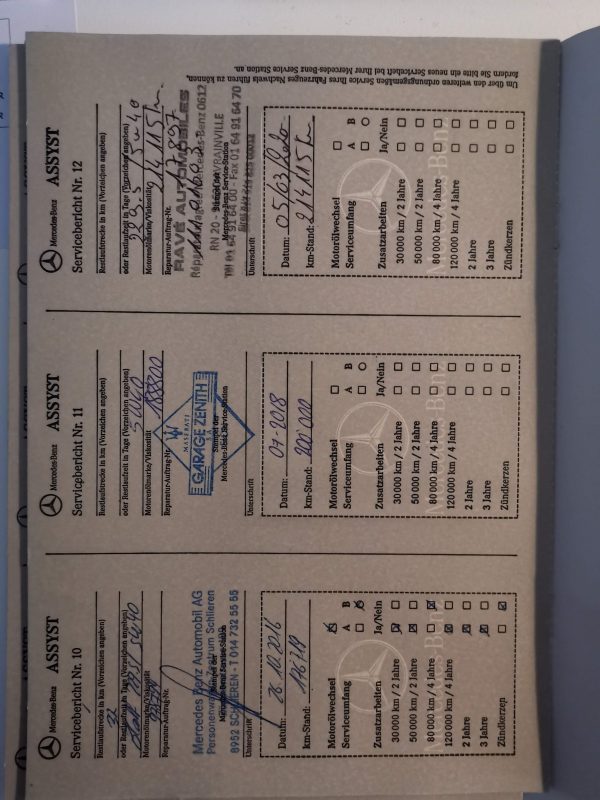 Mercedes-Benz ASSYST
Servicebericht Nr. 10
Restlaufstrecke in km (Vorzeichen angeben)
oder Restlaufzeit in Tage (Vorzeichen angeben)
Motorenölmarke/Viskosität
Reparatur-Auftrag-Nr.
Mercedes Benz Automobil AG
Personenwagen Zentrum Schlieren
8952 SCHLIEREN - T 014 732 55 55
Unterschrift
Datum: 26.10.2016
km-Stand:
Motorölwechsel
Serviceumfang A B
Zusatzarbeiten Ja/Nein
30 000 km / 2 Jahre
50 000 km / 2 Jahre
80 000 km / 4 Jahre
120 000 km / 4 Jahre
2 Jahre
3 Jahre
Zündkerzen
Mercedes-Benz
Mercedes-Benz ASSYST
Servicebericht Nr. 11
Restlaufstrecke in km (Vorzeichen angeben)
oder Restlaufzeit in Tage (Vorzeichen angeben)
Motorenölmarke/Viskosität
Reparatur-Auftrag-Nr.
MASERATI
GARAGE ZENITH
Stempel der
Mercedes-Benz Service-Station
Unterschrift
Datum: 07-2018
km-Stand: 200 000
Motorölwechsel
Serviceumfang A B
Zusatzarbeiten Ja/Nein
30 000 km / 2 Jahre
50 000 km / 2 Jahre
80 000 km / 4 Jahre
120 000 km / 4 Jahre
2 Jahre
3 Jahre
Zündkerzen
Mercedes-Benz
Mercedes-Benz ASSYST
Servicebericht Nr. 12
Restlaufstrecke in km (Vorzeichen angeben)
oder Restlaufzeit in Tage (Vorzeichen angeben)
Motorenölmarke/Viskosität
214115 km
Reparatur-Auftrag-Nr.
RAVÉ AUTOMOBILES
Mercedes-Benz Service-Station
Tél 01 64 91 64 00 - Fax 01 64 91 64 70
Unterschrift
Datum:
km-Stand: 214115 km
Motorölwechsel
Serviceumfang A B
Zusatzarbeiten Ja/Nein
30 000 km / 2 Jahre
50 000 km / 2 Jahre
80 000 km / 4 Jahre
120 000 km / 4 Jahre
2 Jahre
3 Jahre
Zündkerzen
Mercedes-Benz
Um über den weiteren ordnungsgemäßen Service Ihres Fahrzeuges Nachweis führen zu können,
fordern Sie bitte ein neues Serviceheft bei Ihrer Mercedes-Benz Service Station an.